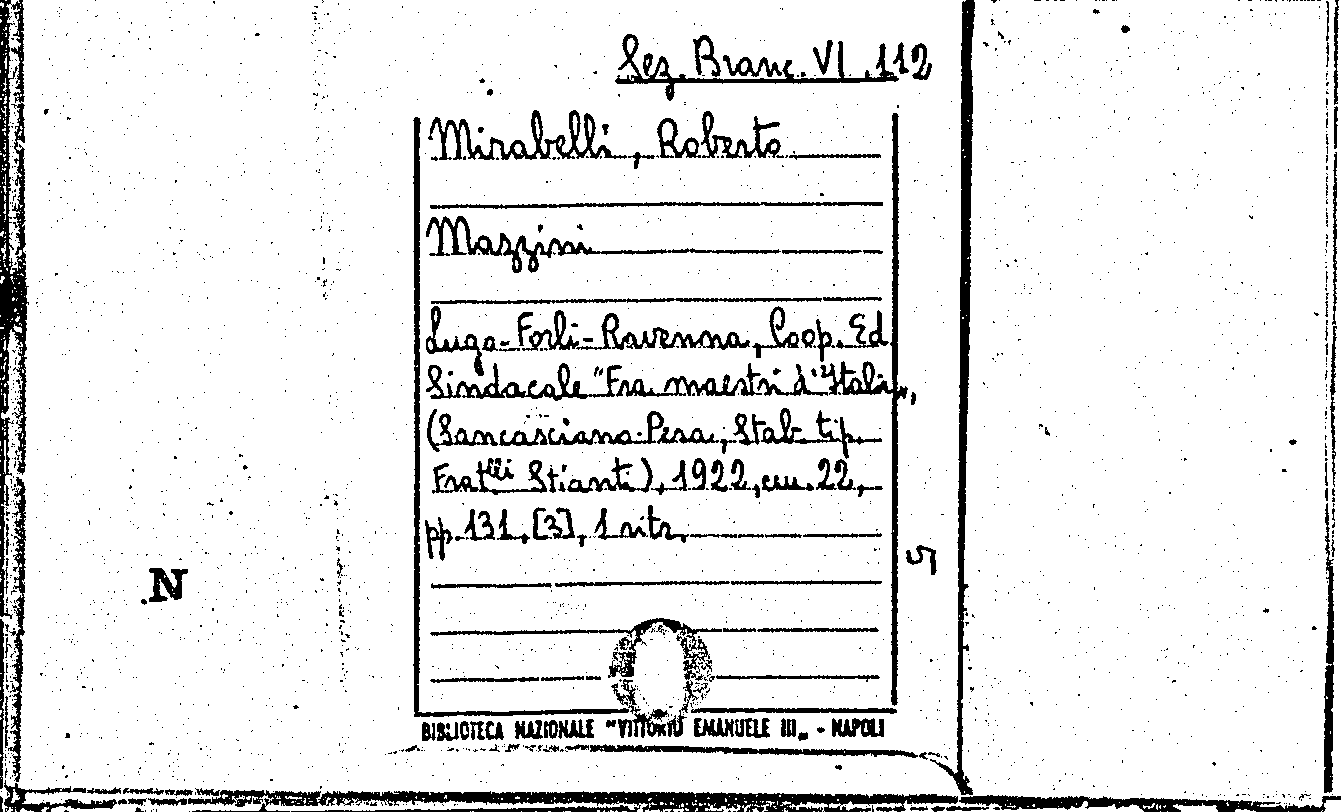 Sez. Branc. VI. 112
Mirabelli, Roberto
Mazzini
Lugo-Forli-Ravenna, Coop. Ed
Sindacale "Fra maestri d'Itali„,
(Sancasciano-Pesa, Stab. tip.
Fratelli Stianti), 1922, cm. 22,
pp. 131, [3], 1 ritr.
5
N
BIBLIOTECA NAZIONALE "VITTORIO EMANUELE III„ - NAPOLI